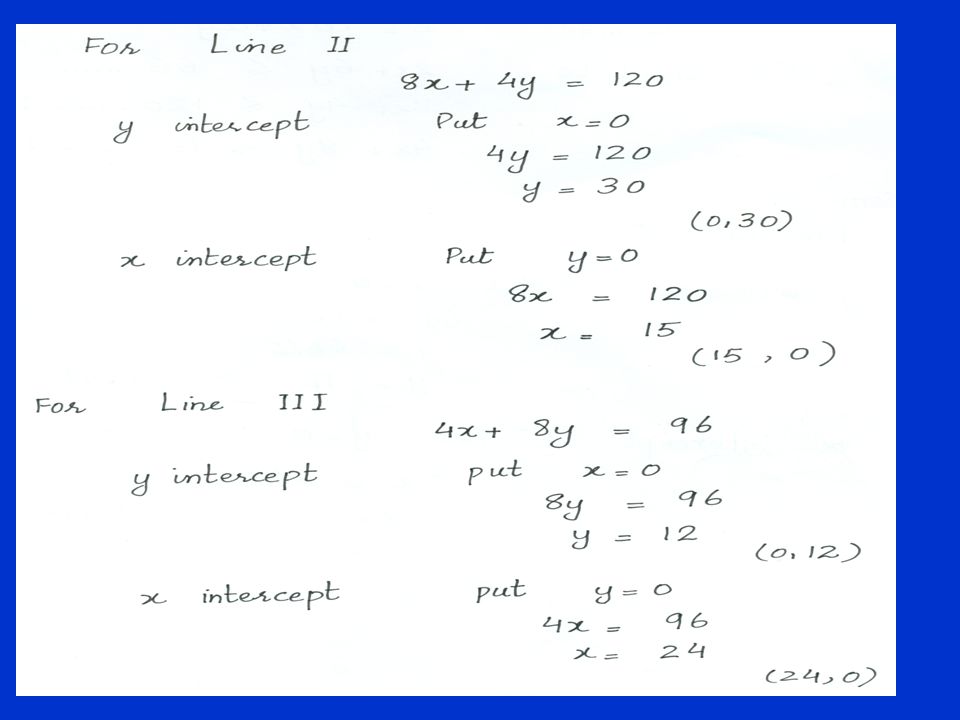 For Line II
8x + 4y = 120
y intercept Put x = 0
4y = 120
y = 30
(0, 30)
x intercept Put y = 0
8x = 120
x = 15
(15 , 0)
For Line III
4x + 8y = 96
y intercept put x = 0
8y = 96
y = 12
(0, 12)
x intercept put y = 0
4x = 96
x = 24
(24, 0)